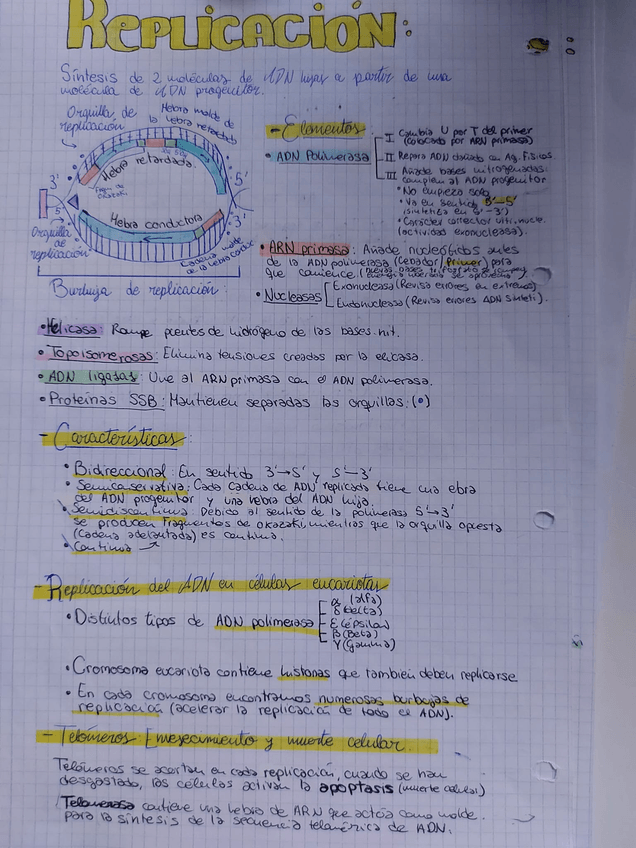 REPLICACIÓN:
Síntesis de 2 moléculas de ADN hijas a partir de una
molécula de ADN progenitor.
Orquilla de
replicación
Hebra molde de
la hebra retardada
Hebra retardada
Hebra conductora
3'
5'
5'
3'
Orquilla
de
replicación
Burbuja de replicación:
- Elementos
• ADN Polimerasa
I Cambia U por T del primer
(colocado por ARN primasa)
II Repara ADN dañado en Ag. Físicos.
III Añade bases nitrogenadas
complem al ADN progenitor
• No empieza solo
• Va en sentido 3'-5'
(sintetiza en 5'-3')
• Carácter corrector
(actividad exonucleasa).
• ARN primasa: Añade nucleótidos antes
de la ADN polimerasa (Cebador/Primer) para
que comience.
• Nucleasas
Exonucleasa (Revisa errores en extremos)
Endonucleasa (Revisa errores ADN sinteti).
• Helicasa: Rompe puentes de hidrógeno de las bases nit.
• Topoisomerosas: Elimina tensiones creadas por la elicasa.
• ADN ligasas: Une al ARN primasa con el ADN polimerasa.
• Proteínas SSB: Mantienen separadas las orquillas. (•)
- Características
• Bidireccional: En sentido 3'→5' y 5'-3'
• Semiconservativa: Cada Cadena de ADN replicada tiene una ebra
del ADN progenitor y una hebra del ADN hija.
• Semidiscontinua: Debido al sentido de la polimerasa 5'→3'
se producen Fragmentos de okazaki, mientras que la orquilla opuesta
(Cadena adelantada) es continua.
• Continua
- Replicación del ADN en células eucariotas
• Distintos tipos de ADN polimerasa
α (alfa)
δ (delta)
ε (épsilon)
β (Beta)
γ (Gamma)
• Cromosoma eucariota contiene histonas que también deben replicarse
• En cada cromosoma encontramos numerosas burbujas de
replicación (acelerar la replicación de todo el ADN).
- Telómeros [envejecimiento y muerte celular
Telómeros se acortan en cada replicación, cuando se han
desgastado, las células activan la apoptasis (muerte celular)
Telomerasa contiene una hebra de ARN que actúa como molde
para la síntesis de la secuencia telomérica de ADN.